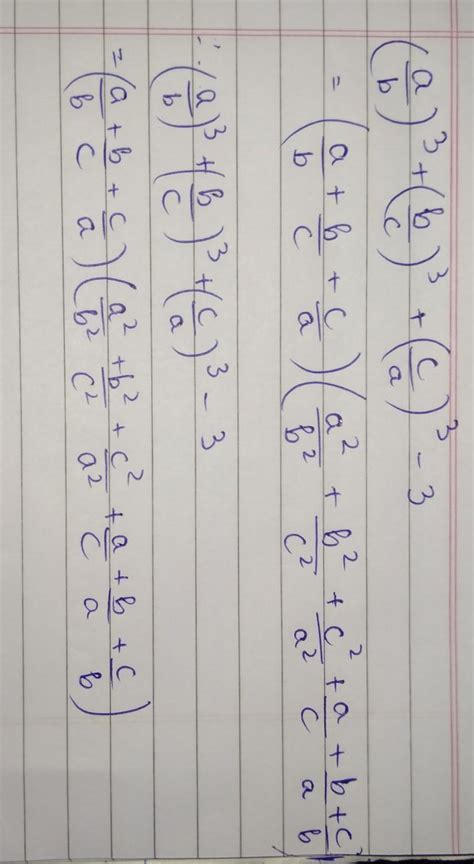 (a/b)³ + (b/c)³ + (c/a)³ - 3
= (a/b + b/c + c/a) (a²/b² + b²/c² + c²/a² + a/c + b/a + c/b)
∴ (a/b)³ + (b/c)³ + (c/a)³ - 3
= (a/b + b/c + c/a) (a²/b² + b²/c² + c²/a² + a/c + b/a + c/b)